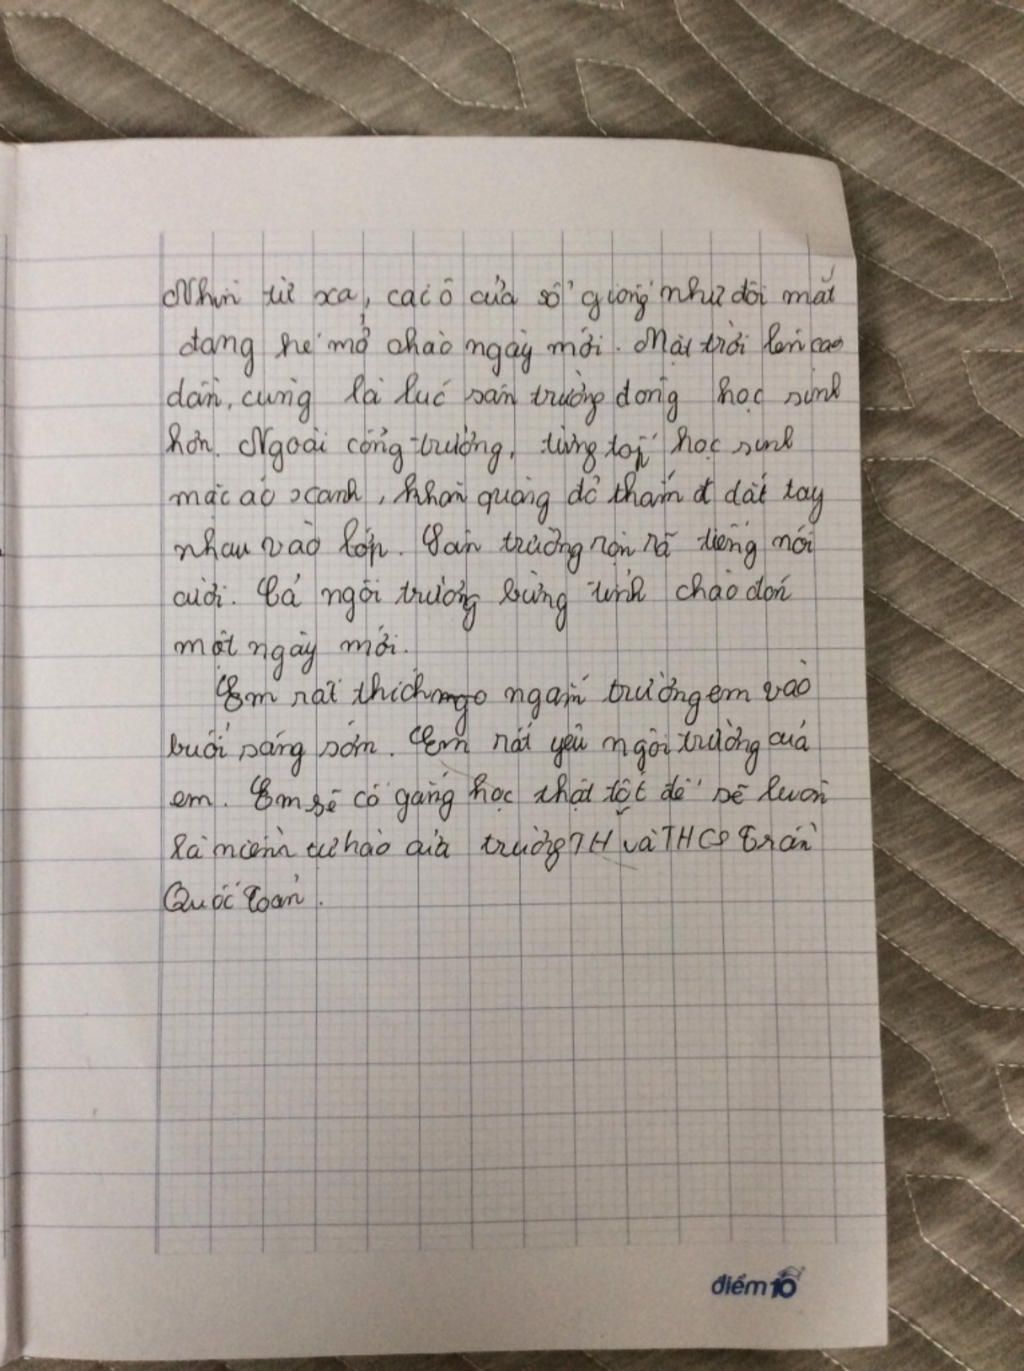 Nhìn từ xa, các ô cửa sổ giống như đôi mắt
đang hé mở chào ngày mới. Mặt trời lên cao
dần, cũng là lúc sân trường đông học sinh
hơn. Ngoài cổng trường, từng tốp học sinh
mặc áo xanh, khăn quàng đỏ thắm đ dắt tay
nhau vào lớp. Sân trường rộn rã tiếng nói
cười. Cả ngôi trường bừng tỉnh chào đón
một ngày mới.
Em rất thích ngắm trường em vào
buổi sáng sớm. Em rất yêu ngôi trường của
em. Em sẽ cố gắng học thật tốt để sẽ luôn
là niềm tự hào của trường TH và THCS Trần
Quốc Toản.
điểm 10